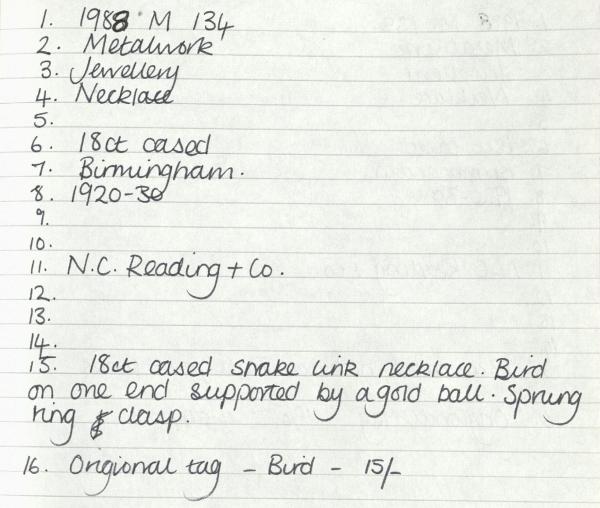 1. 1988 M 134
2. Metalwork
3. Jewellery
4. Necklace
5.
6. 18ct cased
7. Birmingham.
8. 1920-30
9.
10.
11. N.C. Reading + Co.
12.
13.
14.
15. 18ct cased snake link necklace. Bird
on one end supported by a gold ball. Sprung
ring & clasp.
16. Origional tag - Bird - 15/-